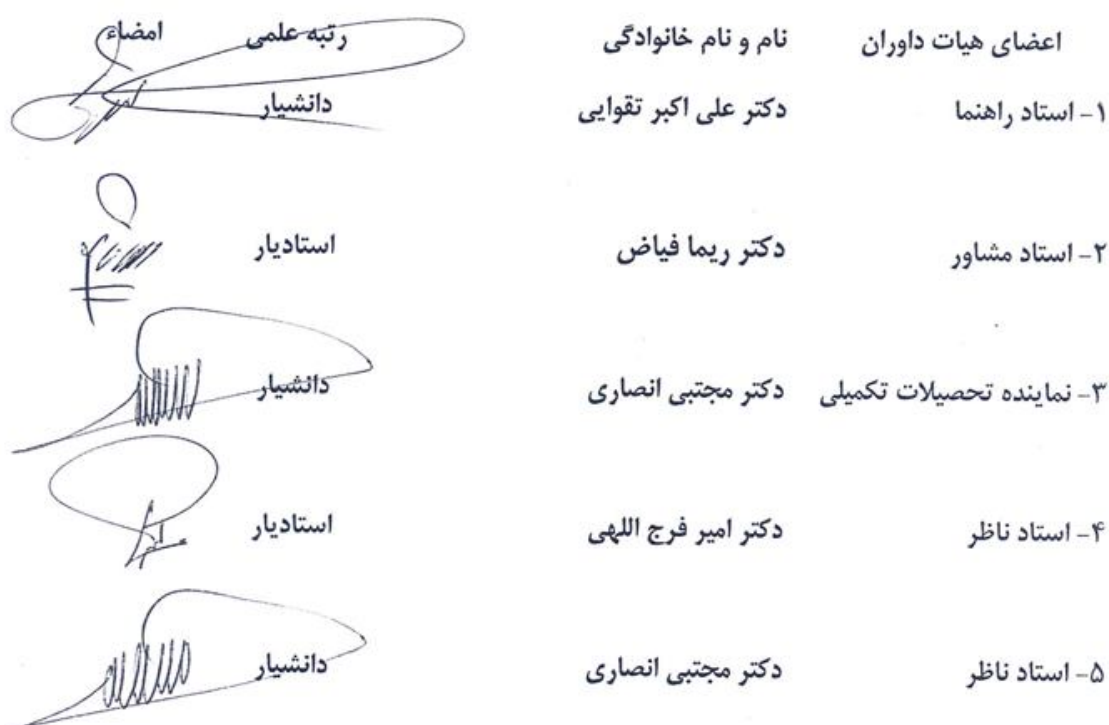 اعضای هیات داوران نام و نام خانوادگی رتبه علمی امضاء
۱- استاد راهنما دکتر علی اکبر تقوایی دانشیار
۲- استاد مشاور دکتر ریما فیاض استادیار
۳- نماینده تحصیلات تکمیلی دکتر مجتبی انصاری دانشیار
۴- استاد ناظر دکتر امیر فرج اللهی استادیار
۵- استاد ناظر دکتر مجتبی انصاری دانشیار